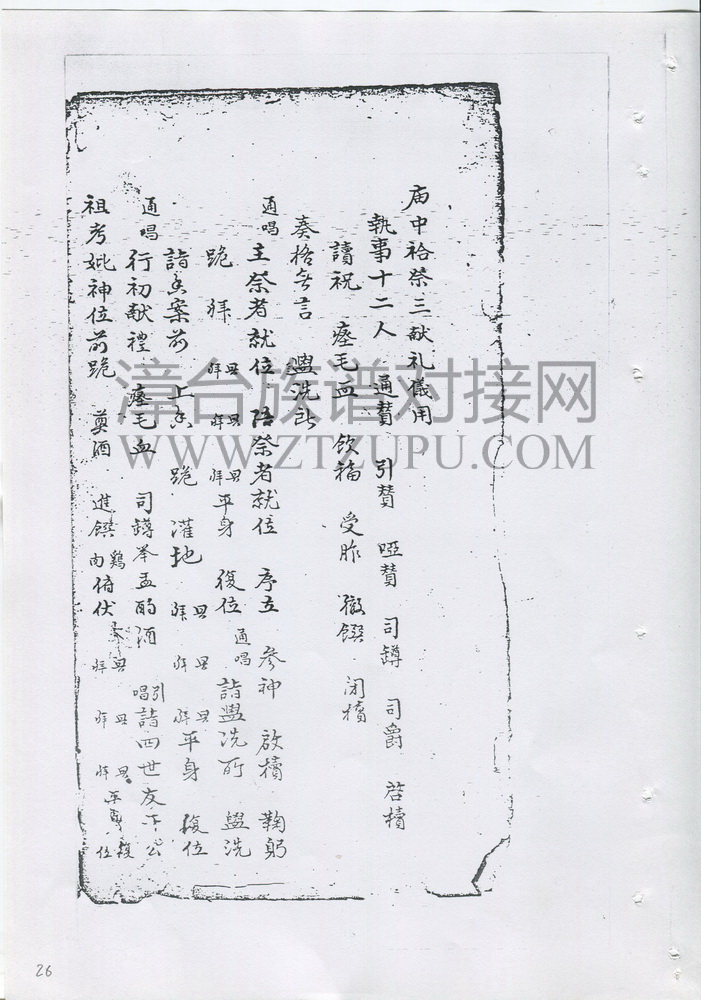 庙中袷祭三献礼儀用
執事十二人 通賛 引賛 啞賛 司罇 司爵 啓櫝
讀祝 瘞毛血 飲福 受胙 徹饌 闭櫝
奏格無言 盥洗所
通唱 主祭者就位 陪祭者就位 序立 参神 啟櫝 鞠躬
跪 拜 興拜 興拜 興平身 復位 通唱 詣盥洗所 盥洗
詣香案前 上香 跪 灌地 拜興 拜興 拜興 平身 復位
通唱 行初献禮 瘞毛血 司罇举盃酌酒 引唱 詣四世友下公
祖考妣神位前跪 奠酒 進饌 鷄肉 俯伏 興拜 興拜 興拜 平身 復位
漳台族谱对接网
WWW.ZTZUPU.COM
26